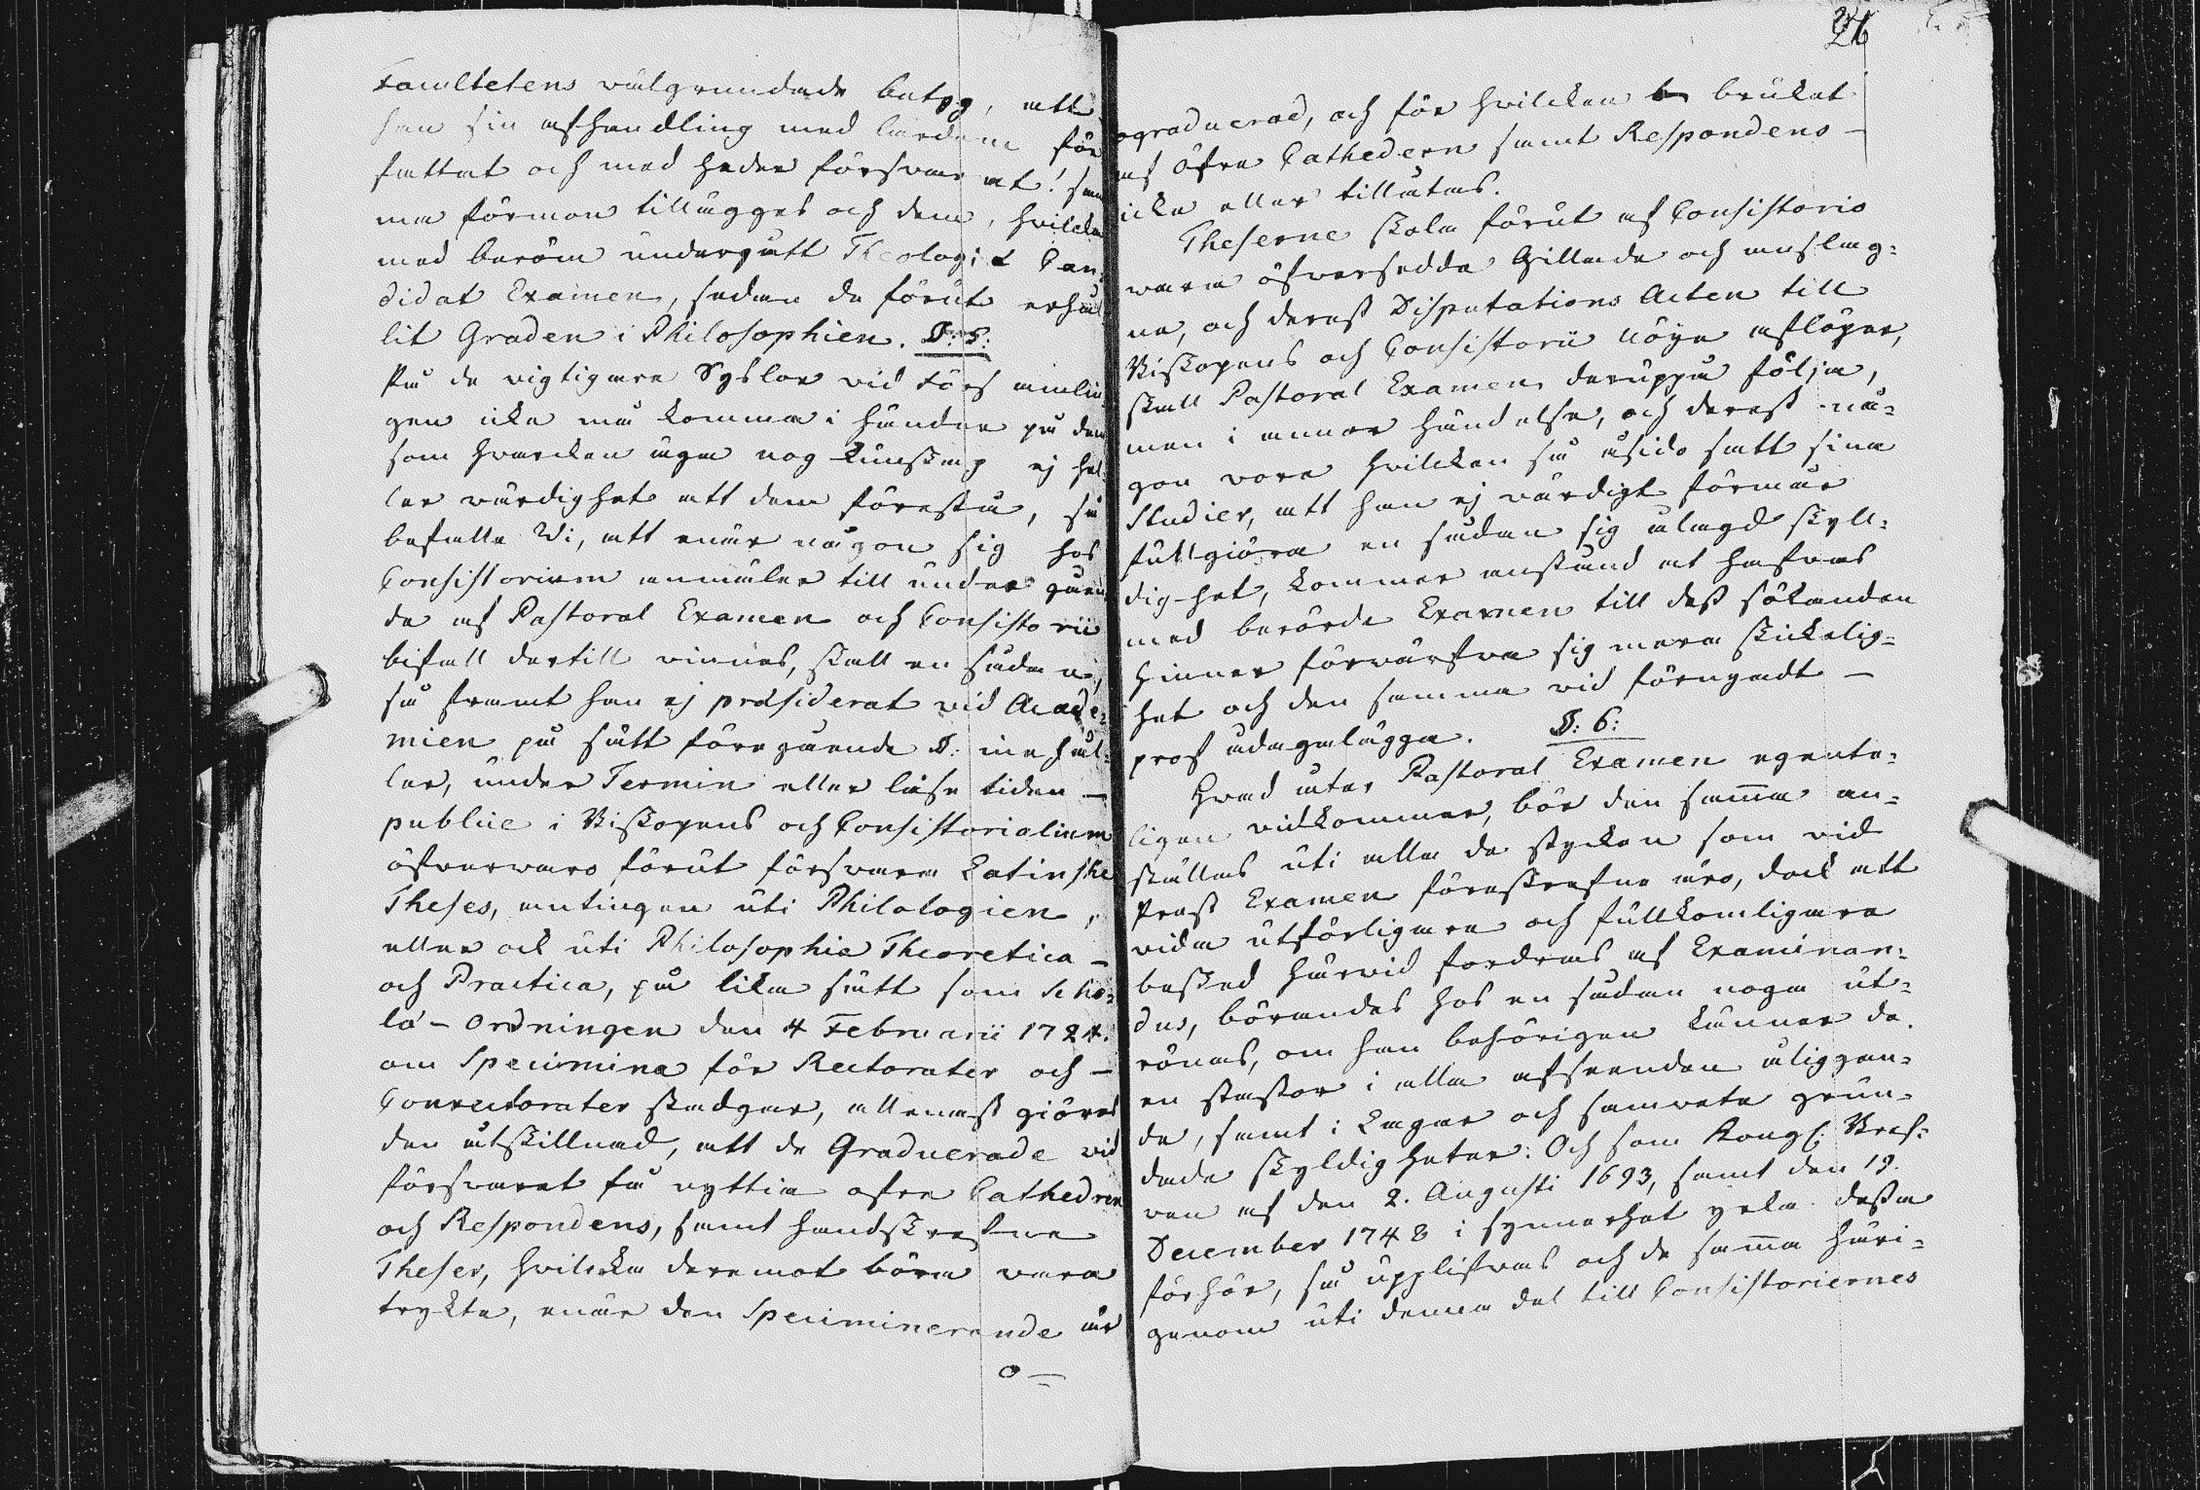 Facultetens wälgrundade betyg, att
han sin afhandling med lärdom för
fattat och med heder försvarat! sam
ma förmon tillägges och dem, hvilcka
med beröm undergått Theologiæ Can
didat Examen, sedan de förut erhål
lit Graden i Philosophien. §: 5:
På de wigtigare Syslor vid Försam̄lin
gen icke må komma i händer på dem
som hwarcken äga nog kunskap ej hel
ler wärdighet att dem förestå, så
befalle Wi, att enär någon sig hos
Consistorium anmäler till undergåen
de af Pastoral Examen och Consistorii
bifall dertill vinnes, skall en sådan,
så framt han ej præsiderat vid Acade-
mien på sätt föregående §: inehål-
ler, under Termin eller läse tiden —
publice i Biskopens och Consistorialium
öfverwaro förut förswara Latinske
Theses, antingen uti Philologien,
eller ock uti Philosophia Theoretica —
och Practica, på lika sätt som Scho-
læ-Ordningen den 4 Februarii 1724.
om Specimina för Rectorater och —
Conrectorater stadgar, allenast giöres
den åtskillnad, att de Graduerade vid
förswaret få nyttia öfra Cathedren
och Respondens, samt handskrefne
Theser, hvilcka deremot böra wara
tryckta, enär den Speciminerande är
o —
26
ograduerad, och för hvilcken bruket
af öfre Cathedern samt Respondens —
icke eller tillåtas.
Theserne skola förut af Consistorio
wara öfwersedda Gillade och anslag-
ne, och derest Disputations Acten till
Biskopens och Consistorii nöye aflöper,
skall Pastoral Examen deruppå följa,
men i annor händelse, och derest nå-
gon vore hvilcken så åsido satt sina
Studier, att han ej wärdigt förmår
fullgiöra en sådan sig ålagd skyl-
dig-het, kommer anstånd at hafvas
med berörde Examen till dess sökanden
hinner förwärfva sig mera skickelig-
het och den samma vid förnyadt —
prof ådagalägga. §: 6:
Hwad åter Pastoral Examen egente-
ligen vidkommer, bör den sam̄a an-
ställas uti alla de stycken som vid
Prest Examen föreskrefne äro, dock att
vida utförligare och fullkomligare
besked härvid fordras af Examinan-
dus, börandes hos en sådan noga ut-
rönas, om han behörigen känner de
en Pastor i alla afseenden åliggan-
de, samt i Lagar och samvete grun-
dade skyldigheter. Och som Kongl: Bref-
ven af den 2. Augusti 1693, samt den 19.
December 1748 i synnerhet yrka dessa
förhör, så upplifvas och de sam̄a häri-
genom uti denna del till Consistoriernes